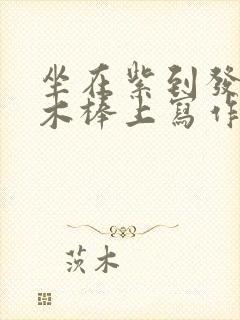 坐在紫到發
木棒上寫作
茨木